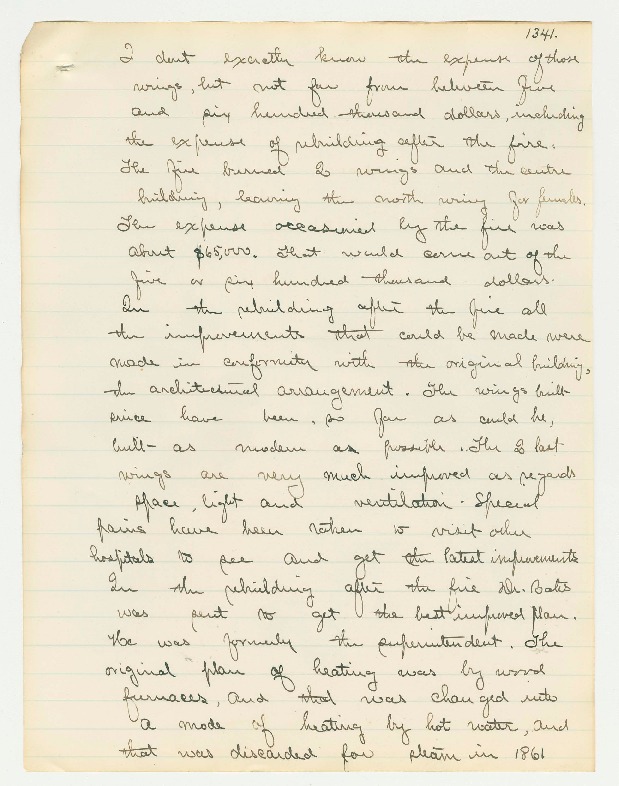 1341.
I dont exactly know the expense of those
wings, but not far from between five
and six hundred thousand dollars, including
the expense of rebuilding after the fire.
The fire burned 2 wings and the centre
building, leaving the north wing for females.
The expense occasioned by the fire was
about $65,000. That would come out of the
five or six hundred thousand dollars.
In the rebuilding after the fire all
the improvements that could be made were
made in conformity with the original building,
the architectural arrangement. The wings built
since have been, so far as could be,
built as modern as possible. The 2 last
wings are very much improved as regards
space, light and ventilation. Special
pains have been taken to visit other
hospitals to see and get the latest improvements
In the rebuilding after the fire Dr. Bates
was sent to get the best improved plan.
He was formerly the superintendent. The
original plan of heating was by wood
furnaces, and that was changed into
a mode of heating by hot water, and
that was discarded for steam in 1861